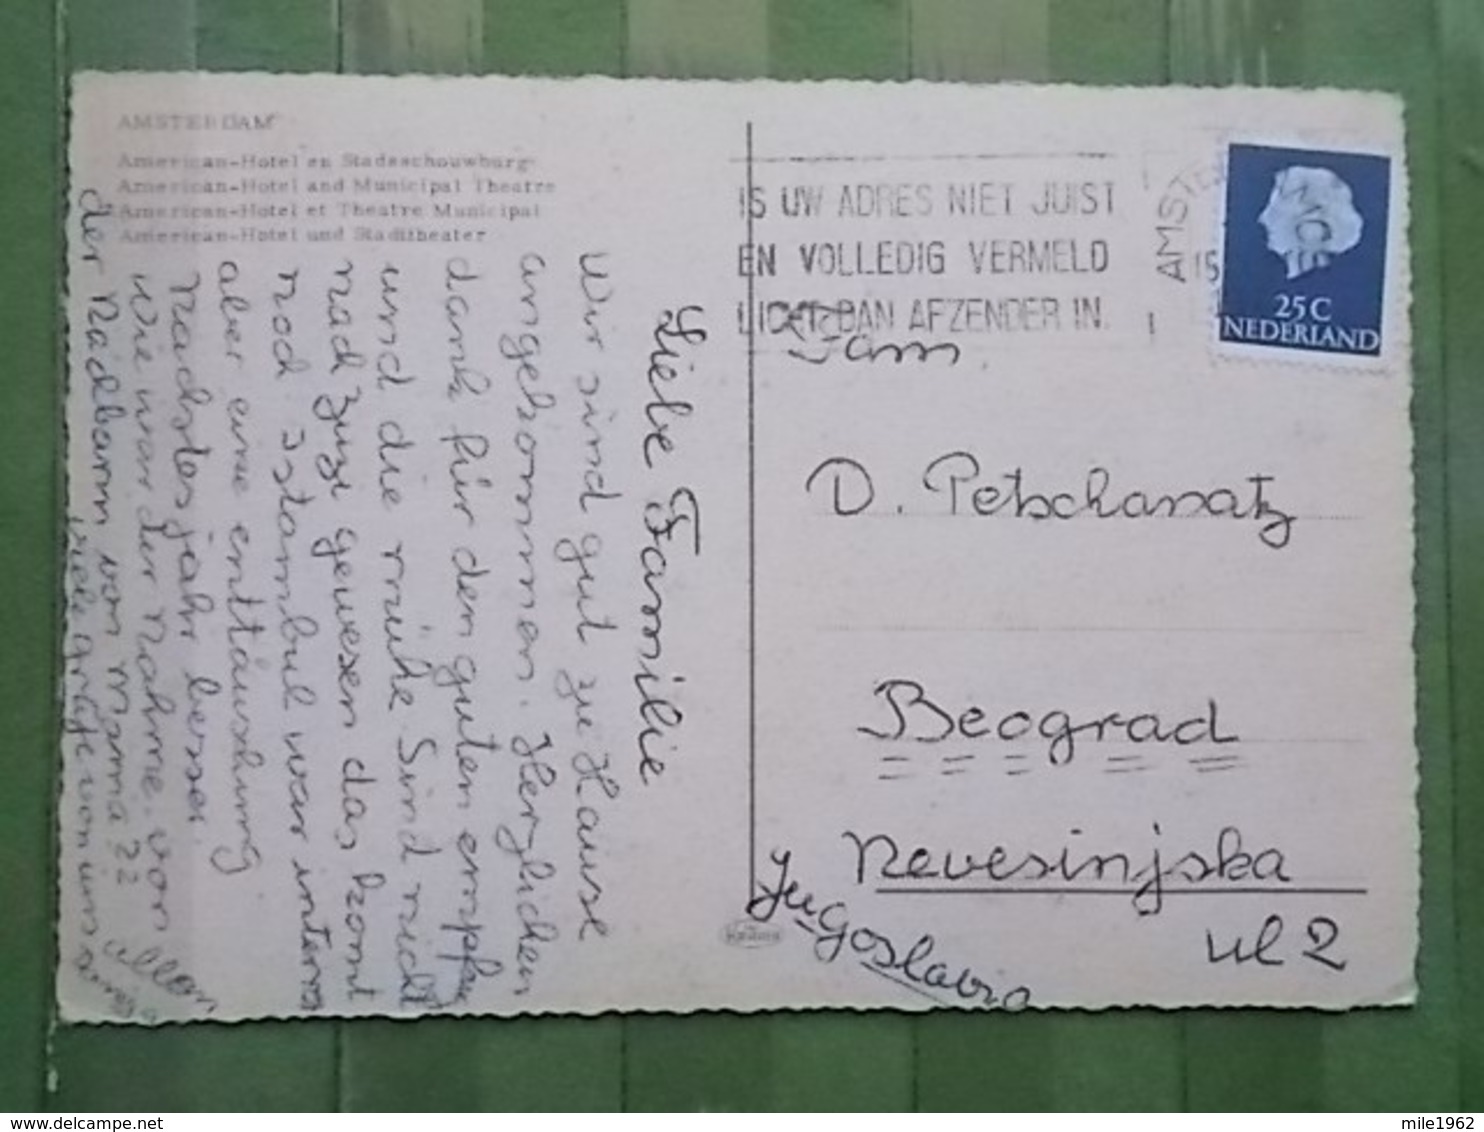 AMSTERDAM
American-Hotel en Stadsschouwburg
American-Hotel and Municipal Theatre
American-Hotel et Theatre Municipal
American-Hotel und Stadttheater
Liebe Familie
Wir sind gut zu Hause
angekommen. Herzlichen
dank für den guten empfan
und die mühe Sind nicht
nach Zuzi gewesen das komt
noch Istambul war interra
aber eine enttäuschung
Nachstes jahr besser.
Wie war der Nahme von
der Nachbarin von Mama ??
viele grüße von uns allen
IS UW ADRES NIET JUIST
EN VOLLEDIG VERMELD
LICHT DAN AFZENDER IN.
AMSTE
15
25 C
NEDERLAND
Fam
D. Petschanatz
Beograd
Nevesinjska
ul 2
Jugoslavia
delcampe.net
mile1962